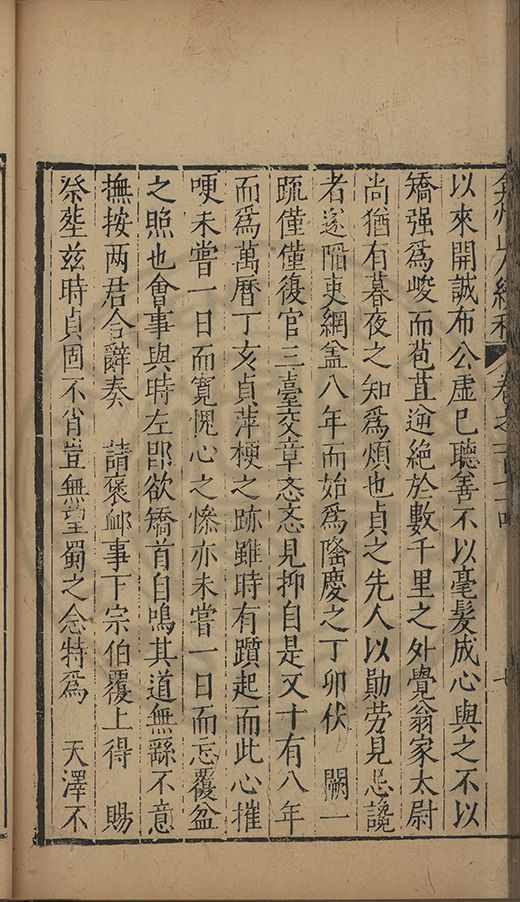 弇州山人續稿 卷之一百七十四 七
以來開誠布公虛已聽善不以毫髮成心與之不以
矯强爲峻而苞苴逈絶於數千里之外覺翁家太尉
尚猶有暮夜之知爲煩也貞之先人以勛勞見忌讒
者遂陷吏網盖八年而始爲隆慶之丁卯伏 闕一
疏僅僅復官三臺交章悫悫見抑自是又十有八年
而爲萬曆丁亥貞萍梗之跡雖時有躓起而此心摧
哽未嘗一日而寬愧心之慘亦未嘗一日而忘覆盆
之照也會事與時左即欲矯首自鳴其道無繇不意
撫按两君合辭奏 請褒䘏事下宗伯覆上得 賜
祭塟兹時貞固不肖豈無望蜀之念特爲 天澤不